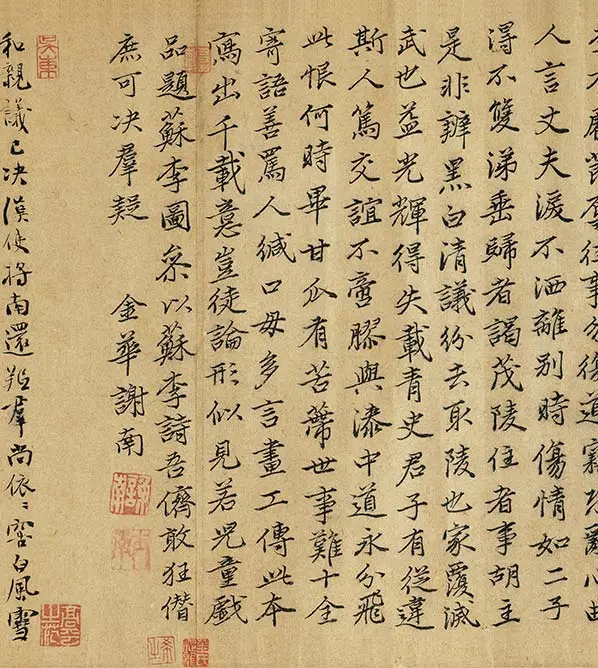 往事勿復道
人言丈夫淚不洒離別時傷情如二子
得不雙涕垂歸者謁茂陵住者事胡主
是非辨黑白清議紛去取陵也家覆滅
武也益光輝得失載青史君子有從違
斯人篤交誼不啻膠與漆中道永分飛
此恨何時畢甘瓜有苦蔕世事難十全
寄語善罵人緘口毋多言畫工傳此本
寫出千載意豈徒論形似見若兒童戲
品題蘇李圖叅以蘇李詩吾儕敢狂僭
庶可决羣疑 金華謝南
和親議已决漢使將南還羝羣尚依〻窖白風雪